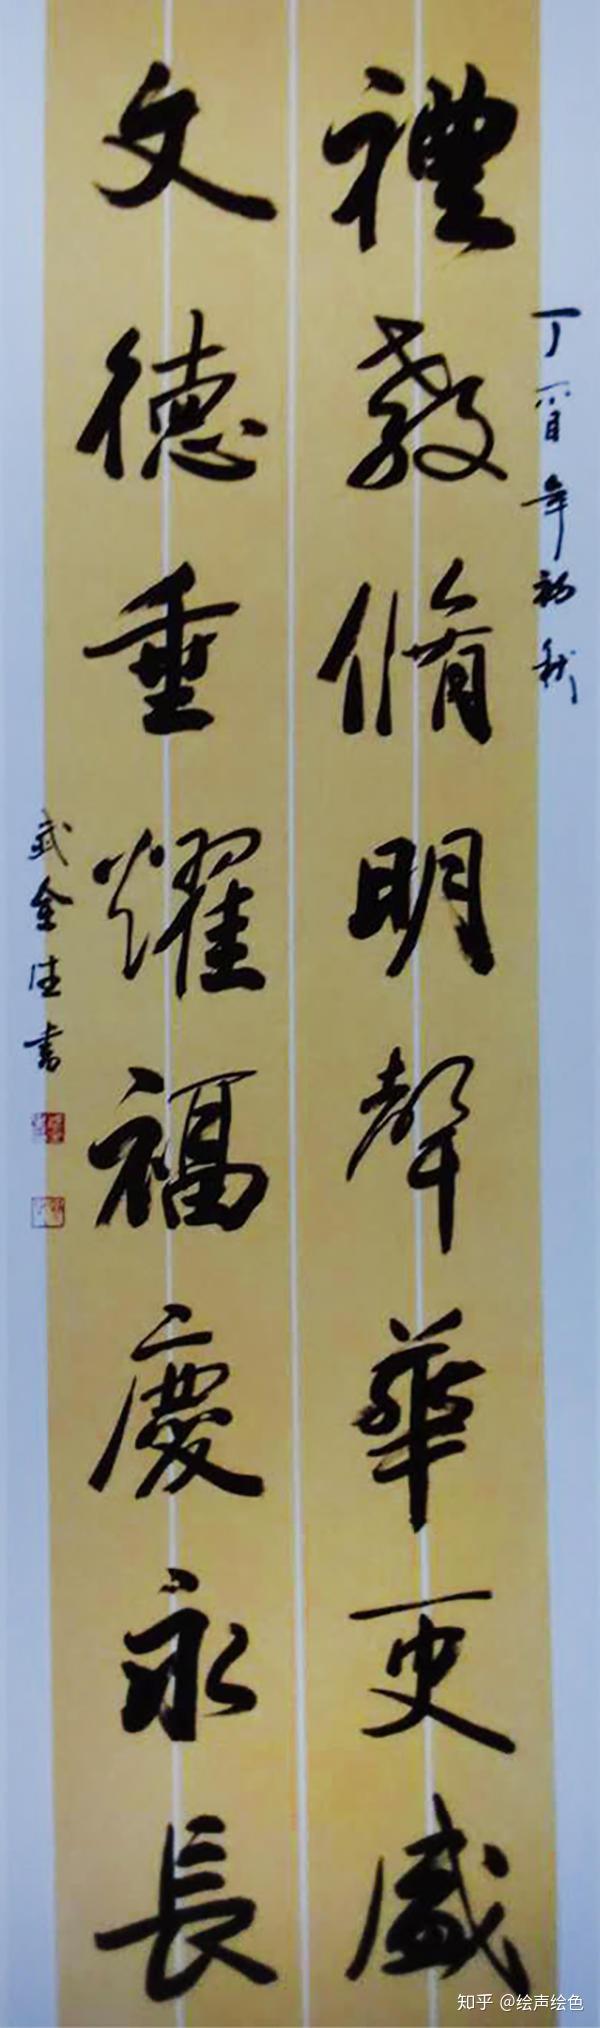 丁酉年初秋
禮教脩明聲華更盛
文德垂燿福慶永長
武金書
知乎 @绘声绘色